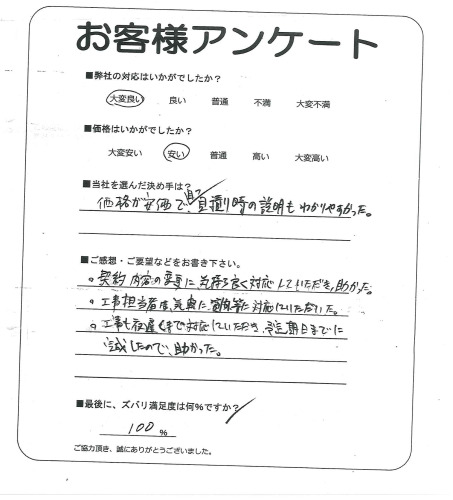 お客様アンケート
■弊社の対応はいかがでしたか?
大変良い 良い 普通 不満 大変不満
■価格はいかがでしたか?
大変安い 安い 普通 高い 大変高い
■当社を選んだ決め手は?
価格が安価で、見積り時の説明もわかりやすかった。
■ご感想・ご要望などをお書き下さい。
。契約内容の変更に、気持ち良く対応していただき、助かった。
。工事担当者は、気良に、対応していただいた。
。工事も夜遅くまで対応していただき、予定期日までに
完成したので、助かった。
■最後に、ズバリ満足度は何%ですか?
100 %
ご協力頂き、誠にありがとうございました。